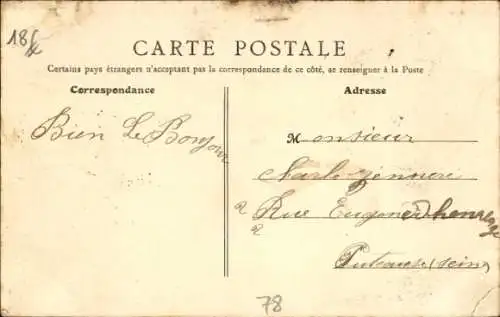 18f
CARTE POSTALE
Certains pays étrangers n'acceptant pas la correspondance de ce côté, se renseigner à la Poste
Correspondance
Adresse
Bien Le Bonjour
Monsieur
Rue Eugene
Puteaux (Seine)
78